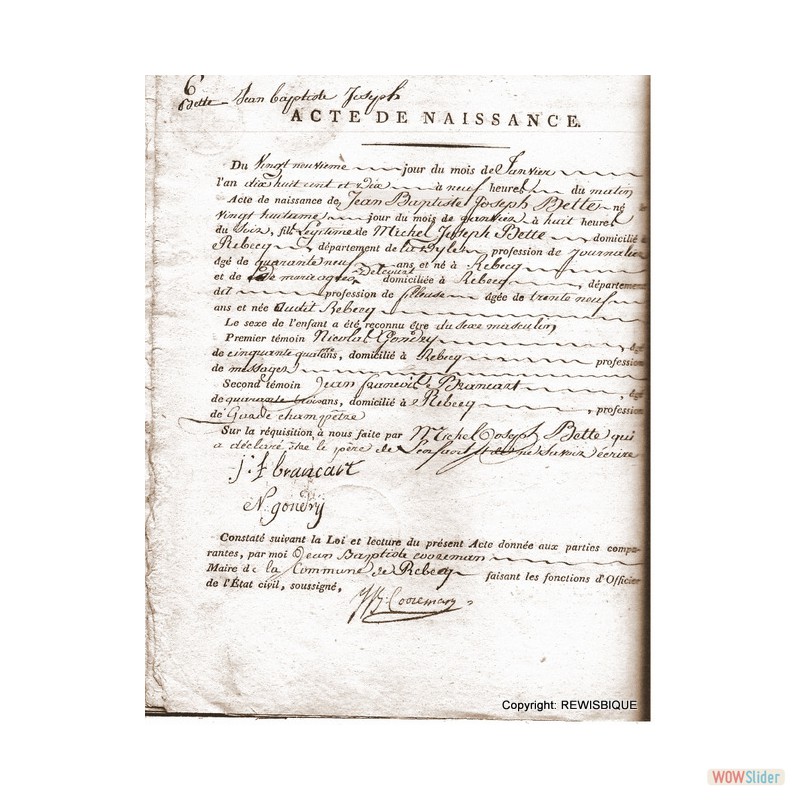 6
Bette Jean baptiste Joseph
ACTE DE NAISSANCE.
Du Vingt neuvieme jour du mois de Janvier
l'an dix huit cent et dix à neuf heures du matin
Acte de naissance de Jean Baptiste Joseph Bette né le
vingt huitieme jour du mois de janvier à huit heures
du soir, fils Legitime de Michel Joseph Bette domicilié à
Rebecq département de la Dyle profession de journalier
âgé de quarante neuf ans et né à Rebecq
et de marie agnes Delcourt domiciliée à Rebecq, département
dit profession de fileuse âgée de trente neuf
ans et née audit Rebecq
Le sexe de l'enfant a été reconnu être du sexe masculin
Premier témoin Nicolas Gondry, âgé
de cinquante quatre ans, domicilié à Rebecq profession
de messager
Second témoin jean francois Brancart, âgé
de quarante trois ans, domicilié à Rebecq, profession
de Garde champêtre
Sur la réquisition à nous faite par Michel Joseph Bette qui
a déclaré être le père de l'enfant et ne savoir écrire
j: f brancart
N. gondry
Constaté suivant la Loi et lecture du présent Acte donnée aux parties compa-
rantes, par moi Jean Baptiste cooreman
Maire de la Commune de Rebecq faisant les fonctions d'Officier
de l'État civil, soussigné,
JB: Cooreman
Copyright: REWISBIQUE
WOWSlider